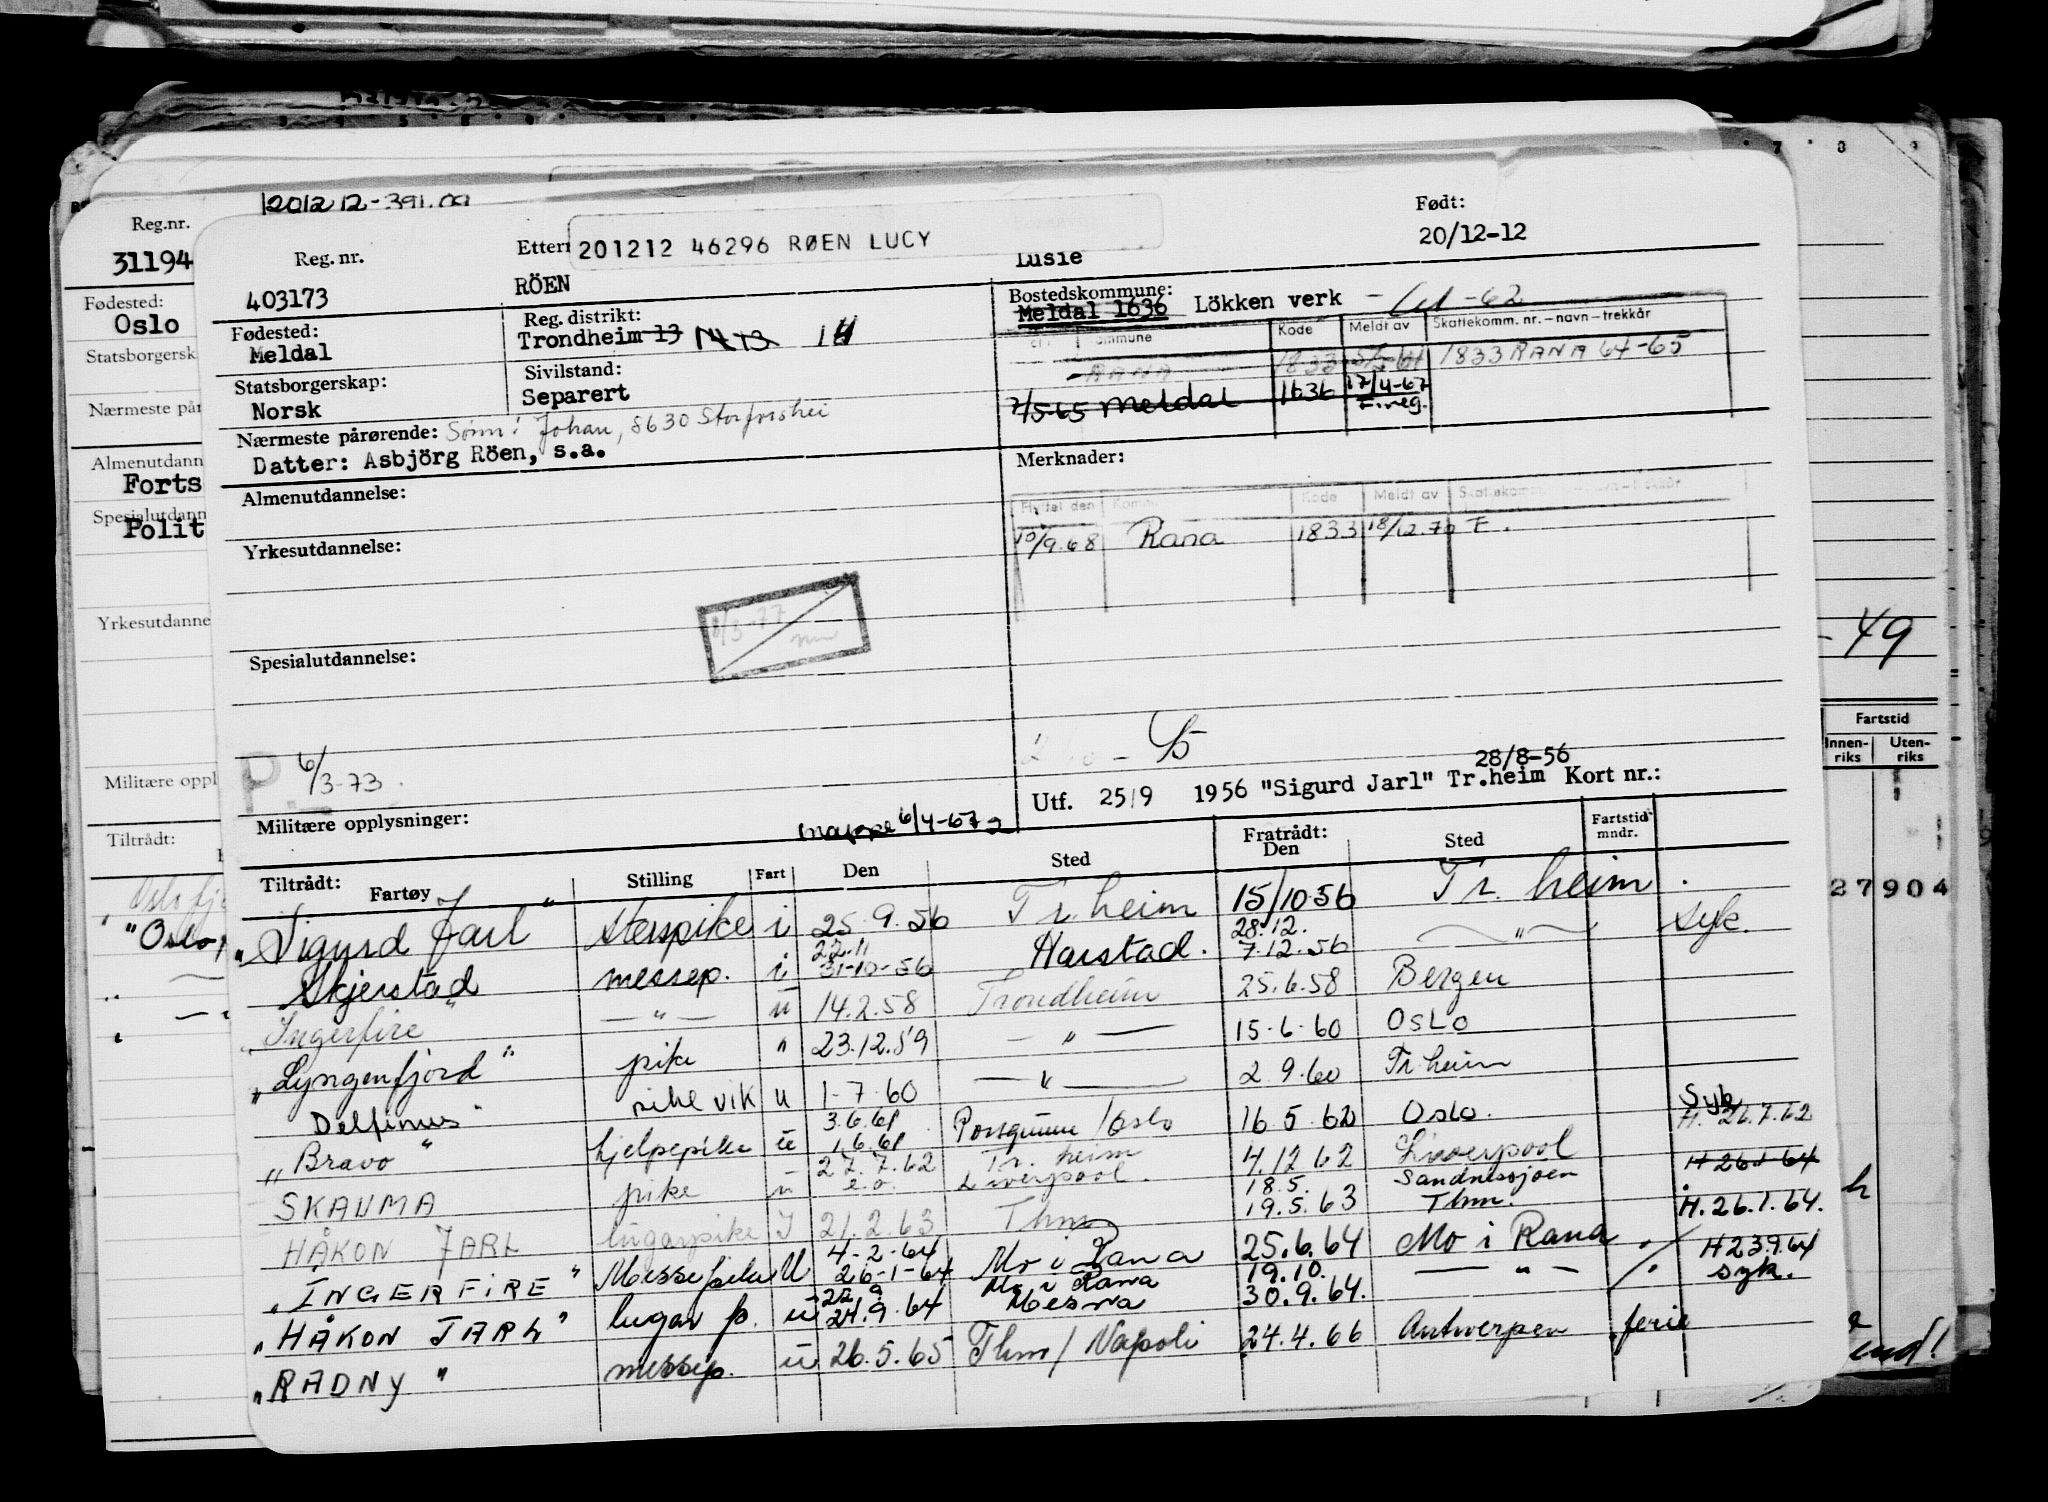 201212-391.09
Reg.nr.
31194
Fødested:
Oslo
Statsborgersk
Nærmeste pår
Almenutdann
Forts
Spesialutdann
Polit
Yrkesutdanne
Militære oppl
Tiltrådt:
"Oslo
Reg. nr.
403173
Ettern
201212 46296 RØEN LUCY
RÖEN
Lusie
Født:
20/12-12
Fødested:
Meldal
Reg. distrikt:
Trondheim 13 14
Bostedskommune:
Meldal 1636 Lökken verk
Statsborgerskap:
Norsk
Sivilstand:
Separert
Kode Meldt av Skattekomm. nr. – navn – trekkår
RANA 1833 1833 RANA 64-65
2/5-65 Meldal 1636 17/4-67 F.reg.
Nærmeste pårørende: Sønn: Johan, 8630 Storforshei
Datter: Asbjörg Röen, s.a.
Almenutdannelse:
Yrkesutdannelse:
Spesialutdannelse:
Merknader:
Flyttet den Komm. Kode Meldt av
10/9.68 Rana 1833 18/12.70 F.
8/3-77
P 6/3-73.
28/8-56
Utf. 25/9 1956 "Sigurd Jarl" Tr.heim Kort nr.:
Militære opplysninger:
mappe 6/4-67
Tiltrådt: Fartøy Stilling Fart Den Sted Fratrådt: Den Sted Fartstid mndr.
"Sigurd Jarl" i 25.9.56 Tr.heim 15/10-56 Tr.heim.
Skjerstad messep. i 22.11 31-10-56 Harstad. 28.12. 7.12.56 — " — syk.
"Ingerfire" — " — u 14.2.58 Trondheim 25.6.58 Bergen
"Lyngenfjord" pike " 23.12.59 — " — 15.6.60 OSLO
Delfinus" pike vik u 1-7-60 — " — 2.9.60 Tr.heim
"Bravo" hjelpepike u 3.6.61 1.6.61 Porsgrunn/Oslo 16.5.62 Oslo. Syk H. 26.7.62
SKAUMA pike 27.7.62 Tr.heim Liverpool. 4.12.62 Liverpool H 26.1 64
HÅKON JARL lugarpike I 21.2.63 Thm 18.5. 19.5.63 Sandnessjøen Thm. H. 26.1.64.
"INGERFIRE" Messepike U 4-2-64 26-1-64 Mo i Rana 25.6.64 Mo i Rana H 23.9.64
"HÅKON JARL" lugar p. 24.9.64 Mo i Rana 19.10. 30.9.64. — " — syk.
"RADNY" messep. u 26.5.65 Thm/Napoli 24.4.66 Antwerpen ferie
7 8 9
- 49
Fartstid
Innen-riks Uten-riks
27904